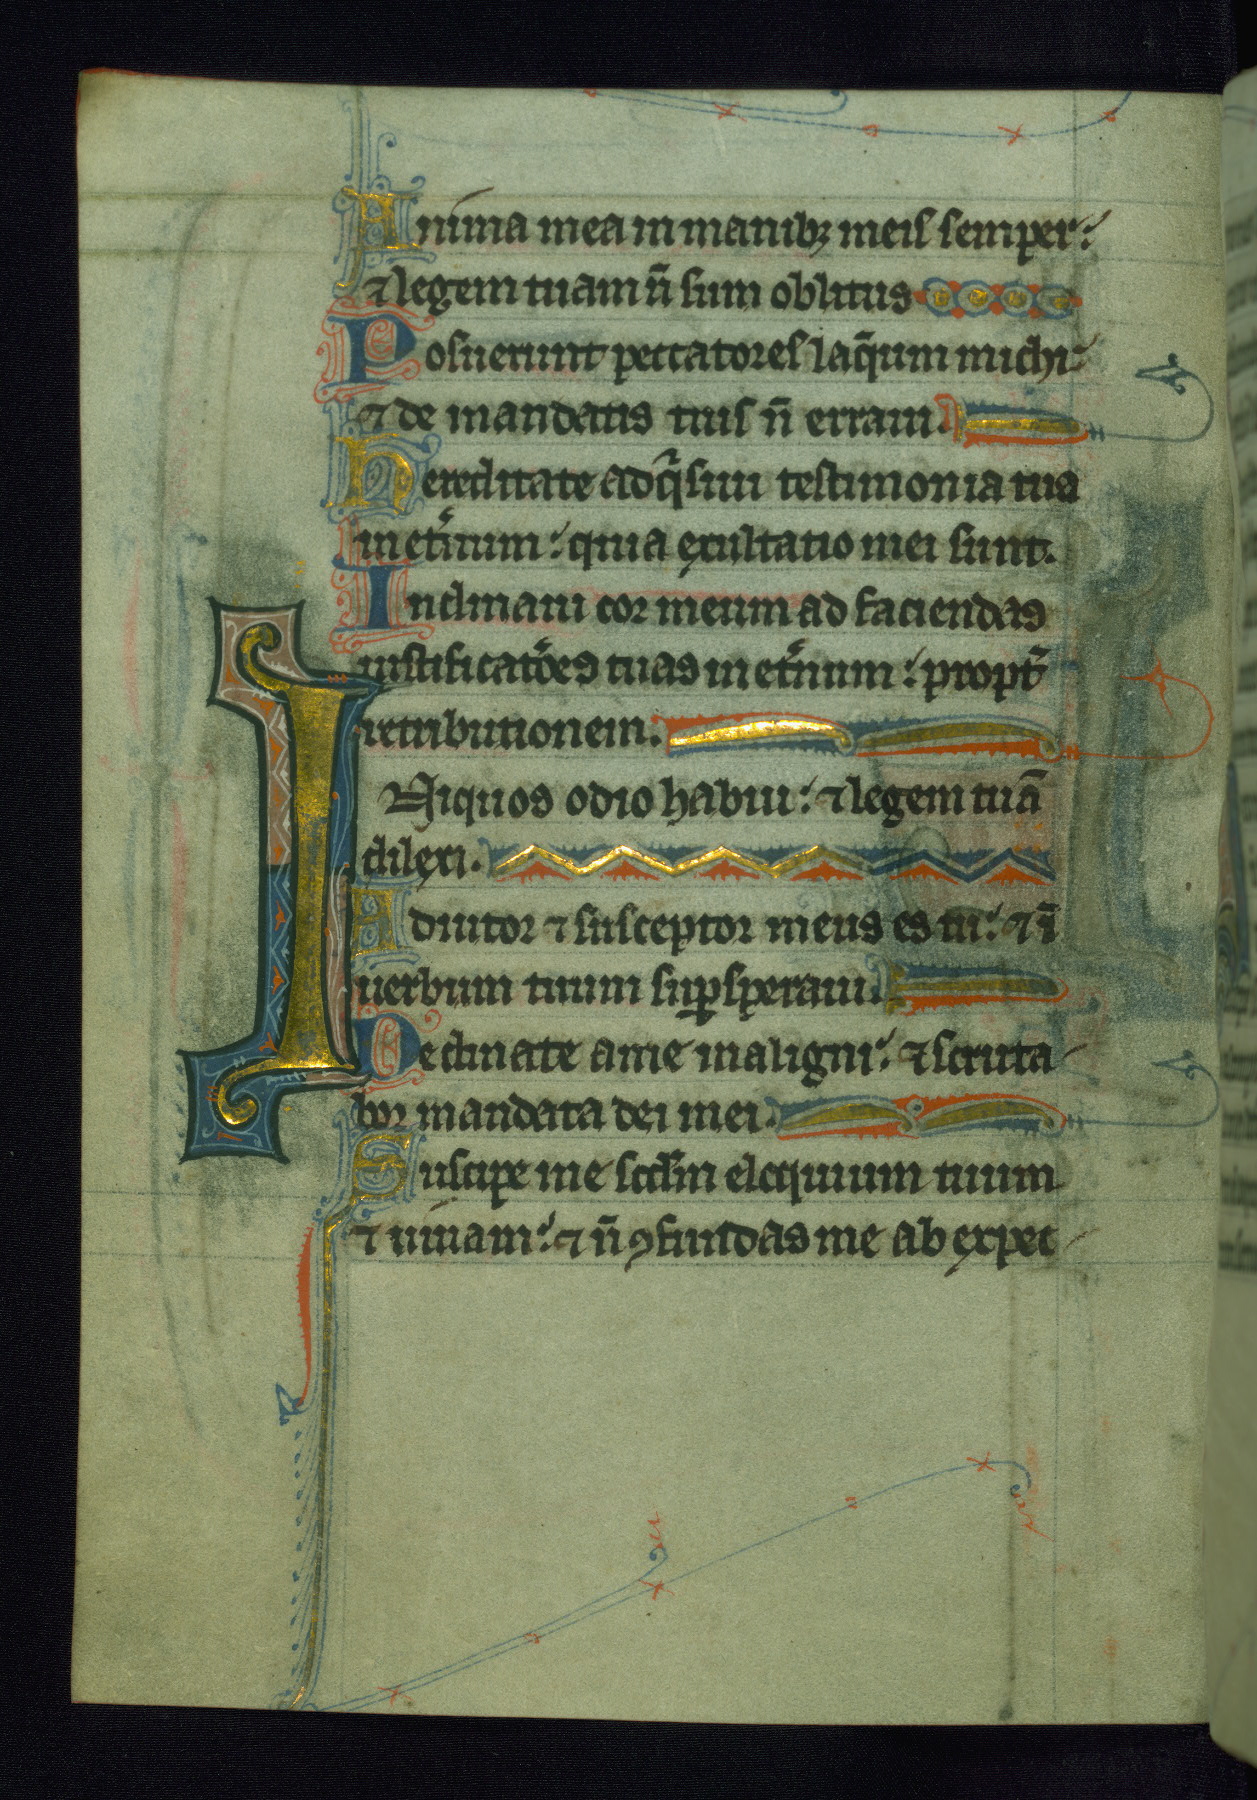 Anima mea in manibꝫ meis semper:
⁊ legem tuam n̄ sum oblitus
Posuerunt peccatores laq̄um michi:
⁊ de mandatis tuis n̄ erraui.
Hereditate adq̇siui testimonia tua
in et̾num: quia exultatio mei sunt.
Inclinaui cor meum ad faciendas
iustificatōes tuas in et̾num: propt̾
retributionem.
INiquos odio habui: ⁊ legem tuā
dilexi.
Adiutor ⁊ susceptor meus es tu: ⁊ ī
uerbum tuum suꝑsperaui.
Declinate a me maligni: ⁊ scruta
bor mandata dei mei.
Suscipe me scd̄m eloquium tuum
⁊ uiuam: ⁊ n̄ ꝯfundas me ab expec